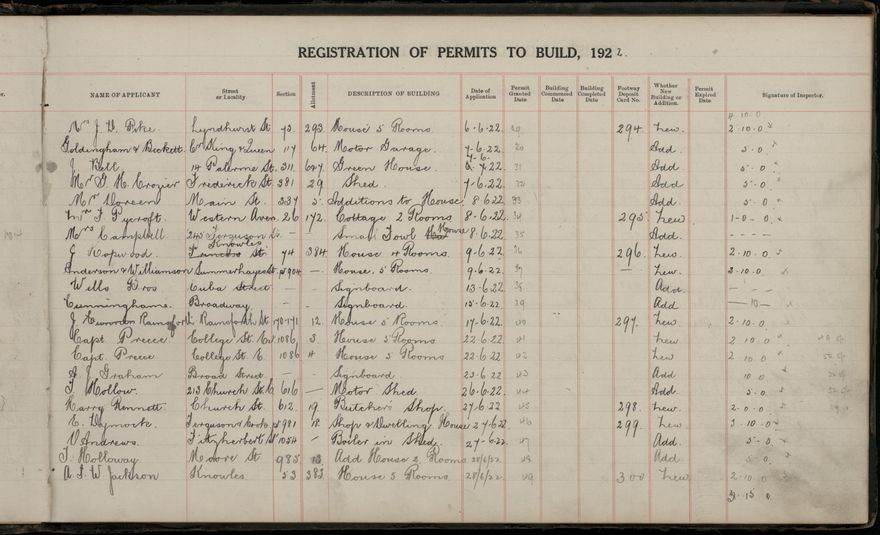 REGISTRATION OF PERMITS TO BUILD, 1922.
NAME OF APPLICANT Street or Locality Section Allotment DESCRIPTION OF BUILDING Date of Application Permit Granted Date Building Commenced Date Building Completed Date Footway Deposit Card No. Whether New Building or Addition. Permit Expired Date Signature of Inspector.
4.10.0
Mrs J. D. Pike. Lyndhurst St 73. 293 House 5 Rooms 6.6.22. 294. New. 2.10.0
Goldingham & Beckett Cr King & Queen 117 64. Motor Garage. 7.6.22 20 Add 5.0.
J Bell 14 Palerme St. 311. 647. Green House. 22 31 Add 5.0.
Mr G. H. Crozier Frederick St. 381 29 Shed. 7.6.22 Add 5.0
Main St. 337 5. Additions to House. 8.6.22 33 Add 5.0
Mr F Pycroft. Western Aven. 26 172. Cottage 2 Rooms 8.6.22. 34 295 New 1-0-0.
Mrs Campbell. 245 Ferguson St. — Small Fowl House 8.6.22 35 Add. - - - -
Knowles
G Hopwood. St. 74 384 House 4 Rooms. 9.6.22 36 296. New. 2.10.0.
Anderson & Williamson Summerhayes St. 904 — House. 5 Rooms. 9.6.22. 37 — New. 3.10.0.
Wells Bros Cuba Street — — Signboard. 13.6.22 38 Add. — . — .
Cunninghame. Broadway — — Signboard. 15.6.22 39 Add — 10 —
J Rainforth Rainforth St. 170-171 12. House 5 Rooms. 17.6.22 40 297. New 2.10.0.
Capt. Preece. College St. 1086. 3 House 5 Rooms 22.6.22 41 New 2.10.0.
Capt. Preece. College St. 1086 4 House 5 Rooms 22.6.22 42 New 2.10.0
A J Graham Broad Street. — Signboard. 23.6.22 43 Add 10.0
T Hollow. 213 Church St. 616 — Motor Shed. 26.6.22. 44 Add. 5.0.
Harry Rennett. Church St. 612. 19 Butchers Shop. 27.6.22 45 298. New. 2.0.0.
C. Dymock. Ferguson & Cook St 981 18 Shop & Dwelling House 27.6.22 46 299. New. 3.10.0
V Andrews. Fitzherbert St 1054 — Boiler in Shed. 27-6.22. 47 Add. 5.0.
T. Holloway Moore St. 985 13 Add House 2 Rooms 28/6/22. 48 Add 5.0.
A. F. W Jackson Knowles 53 383 House 5 Rooms. 28/6/22 49 300 New. 2.10.0
3.15.0.